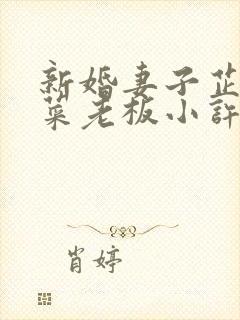 新婚妻子芷
菜老板小許
肖婷